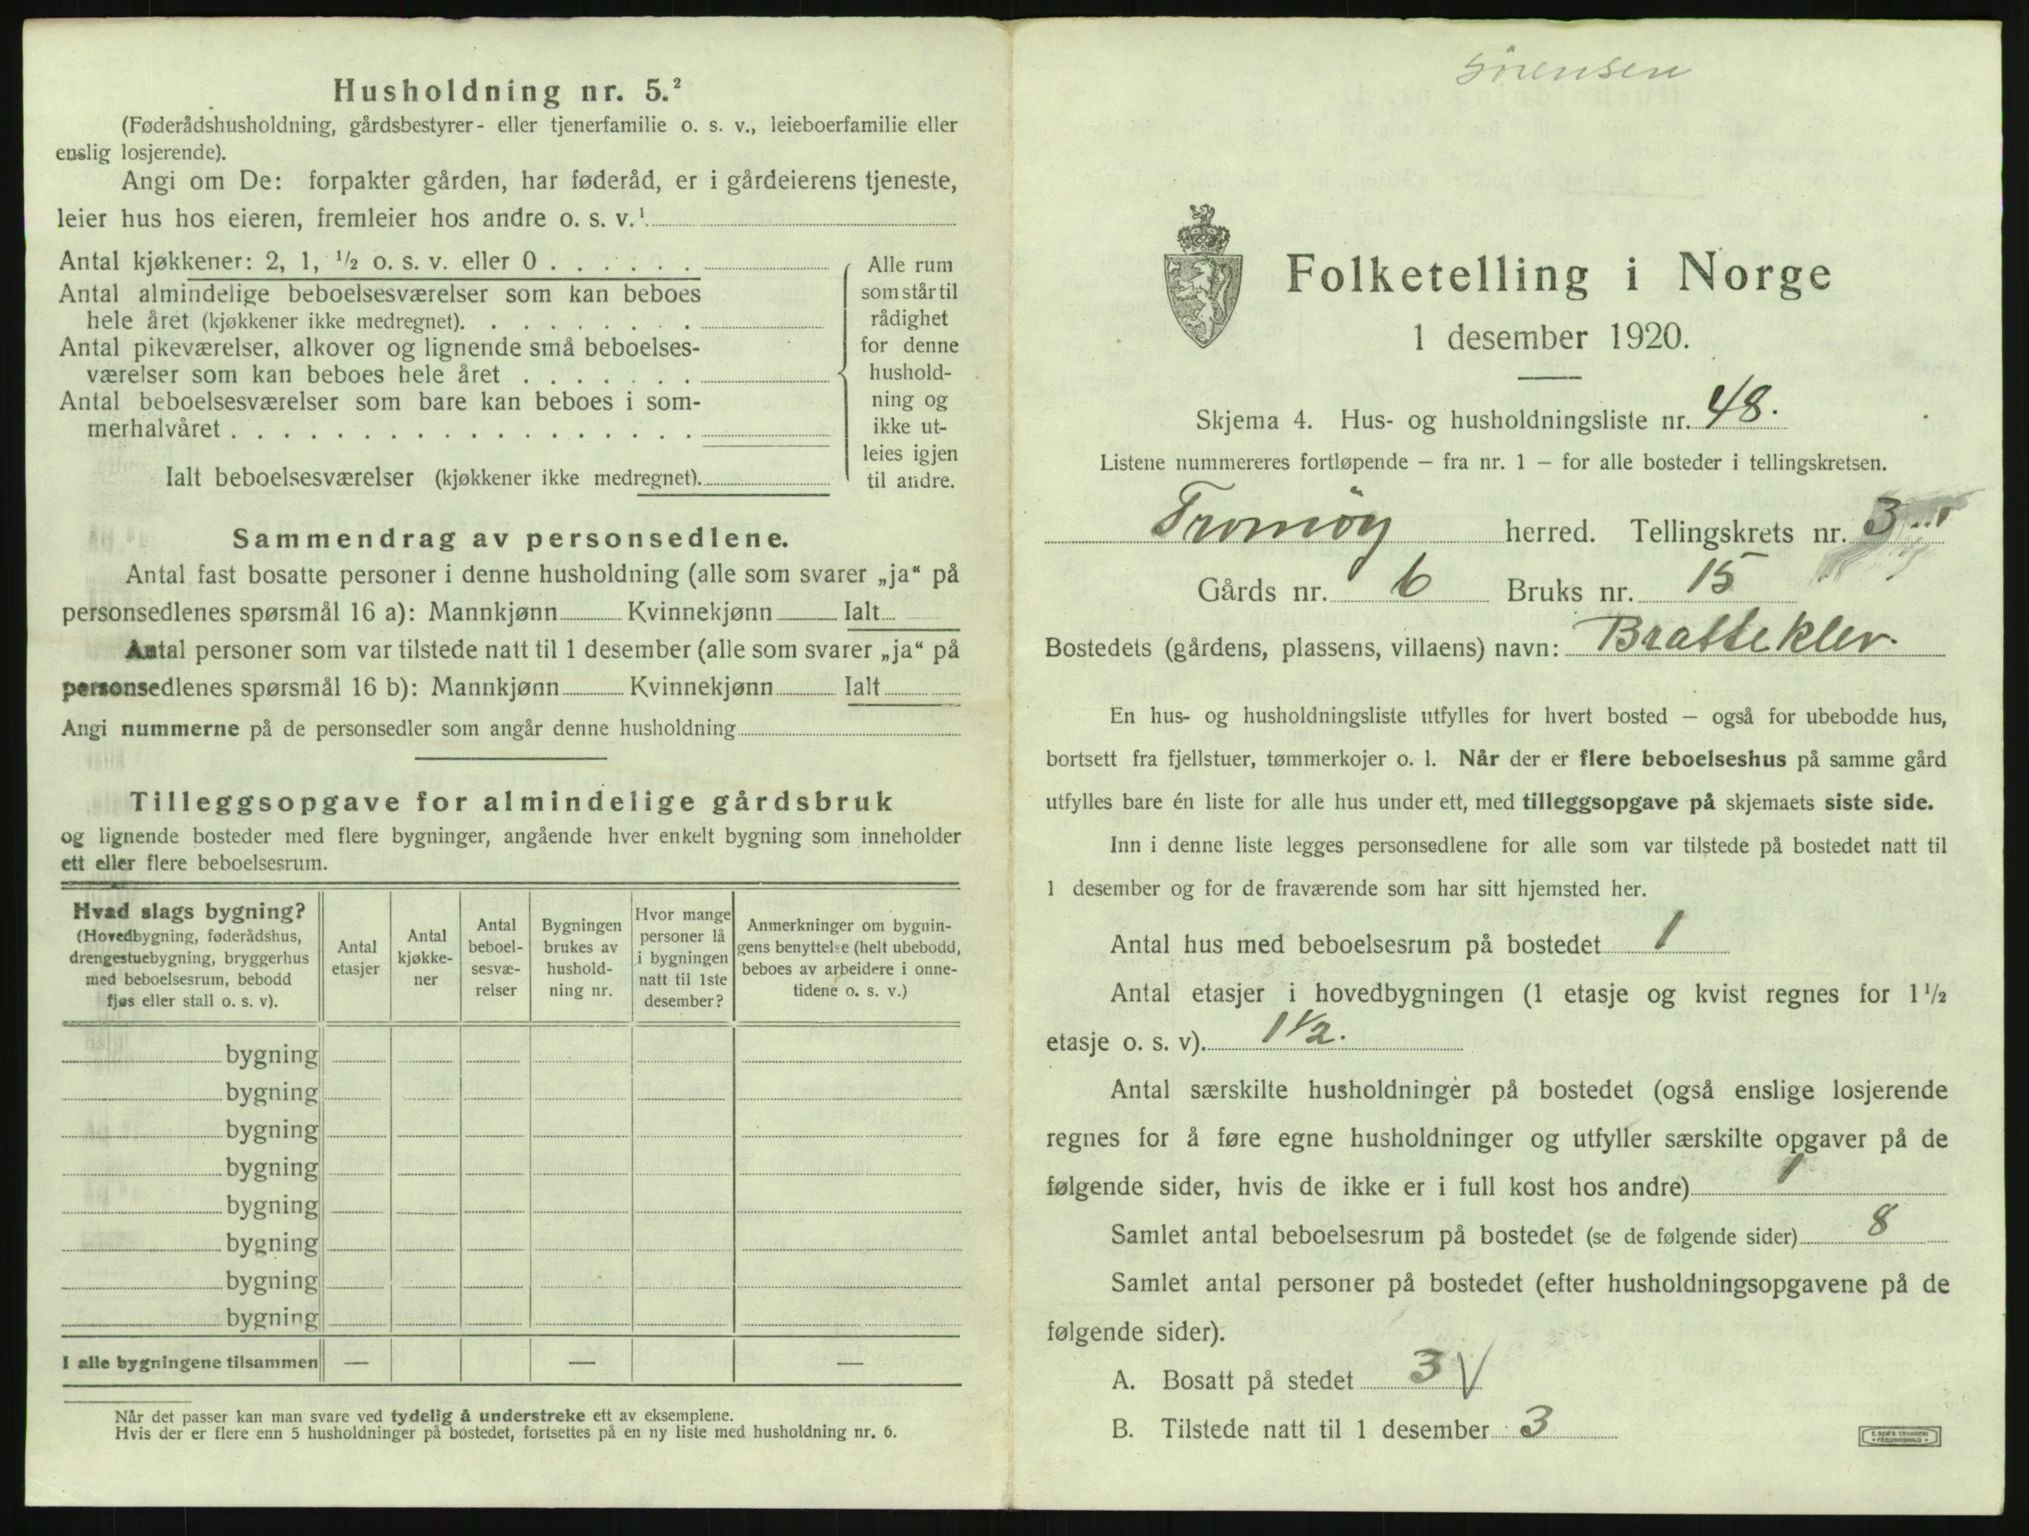 Husholdning nr. 5.²
(Føderådshusholdning, gårdsbestyrer- eller tjenerfamilie o. s. v., leieboerfamilie eller
enslig losjerende).
Angi om De: forpakter gården, har føderåd, er i gårdeierens tjeneste,
leier hus hos eieren, fremleier hos andre o. s. v.¹
Antal kjøkkener: 2, 1, ½ o. s. v. eller 0 . . . . . .
Antal almindelige beboelsesværelser som kan beboes
hele året (kjøkkener ikke medregnet). . . . . . . . .
Antal pikeværelser, alkover og lignende små beboelses-
værelser som kan beboes hele året . . . . . . .
Antal beboelsesværelser som bare kan beboes i som-
merhalvåret . . . . . . . . . . . . . . . . . .
Ialt beboelsesværelser (kjøkkener ikke medregnet).
Alle rum
som står til
rådighet
for denne
hushold-
ning og
ikke ut-
leies igjen
til andre.
Sammendrag av personsedlene.
Antal fast bosatte personer i denne husholdning (alle som svarer „ja“ på
personsedlenes spørsmål 16 a): Mannkjønn Kvinnekjønn Ialt
Antal personer som var tilstede natt til 1 desember (alle som svarer „ja“ på
personsedlenes spørsmål 16 b): Mannkjønn Kvinnekjønn Ialt
Angi nummerne på de personsedler som angår denne husholdning
Tilleggsopgave for almindelige gårdsbruk
og lignende bosteder med flere bygninger, angående hver enkelt bygning som inneholder
ett eller flere beboelsesrum.
Hvad slags bygning?
(Hovedbygning, føderådshus,
drengestuebygning, bryggerhus
med beboelsesrum, bebodd
fjøs eller stall o. s. v).
Antal
etasjer
Antal
kjøkke-
ner
Antal
beboel-
sesvæ-
relser
Bygningen
brukes av
hushold-
ning nr.
Hvor mange
personer lå
i bygningen
natt til 1ste
desember?
Anmerkninger om bygnin-
gens benyttelse (helt ubebodd,
beboes av arbeidere i onne-
tidene o. s. v.)
bygning
bygning
bygning
bygning
bygning
bygning
bygning
bygning
I alle bygningene tilsammen — — —
Når det passer kan man svare ved tydelig å understreke ett av eksemplene.
Hvis der er flere enn 5 husholdninger på bostedet, fortsettes på en ny liste med husholdning nr. 6.
Sörensen
Folketelling i Norge
1 desember 1920.
Skjema 4. Hus- og husholdningsliste nr. 48.
Listene nummereres fortløpende – fra nr. 1 – for alle bosteder i tellingskretsen.
Tromöy herred. Tellingskrets nr. 3
Gårds nr. 6 Bruks nr. 15
Bostedets (gårdens, plassens, villaens) navn: Bratteklev.
En hus- og husholdningsliste utfylles for hvert bosted – også for ubebodde hus,
bortsett fra fjellstuer, tømmerkojer o. l. Når der er flere beboelseshus på samme gård
utfylles bare én liste for alle hus under ett, med tilleggsopgave på skjemaets siste side.
Inn i denne liste legges personsedlene for alle som var tilstede på bostedet natt til
1 desember og for de fraværende som har sitt hjemsted her.
Antal hus med beboelsesrum på bostedet 1
Antal etasjer i hovedbygningen (1 etasje og kvist regnes for 1½
etasje o. s. v). 1½.
Antal særskilte husholdninger på bostedet (også enslige losjerende
regnes for å føre egne husholdninger og utfyller særskilte opgaver på de
følgende sider, hvis de ikke er i full kost hos andre) 1
Samlet antal beboelsesrum på bostedet (se de følgende sider) 8
Samlet antal personer på bostedet (efter husholdningsopgavene på de
følgende sider).
A. Bosatt på stedet 3 V
B. Tilstede natt til 1 desember 3